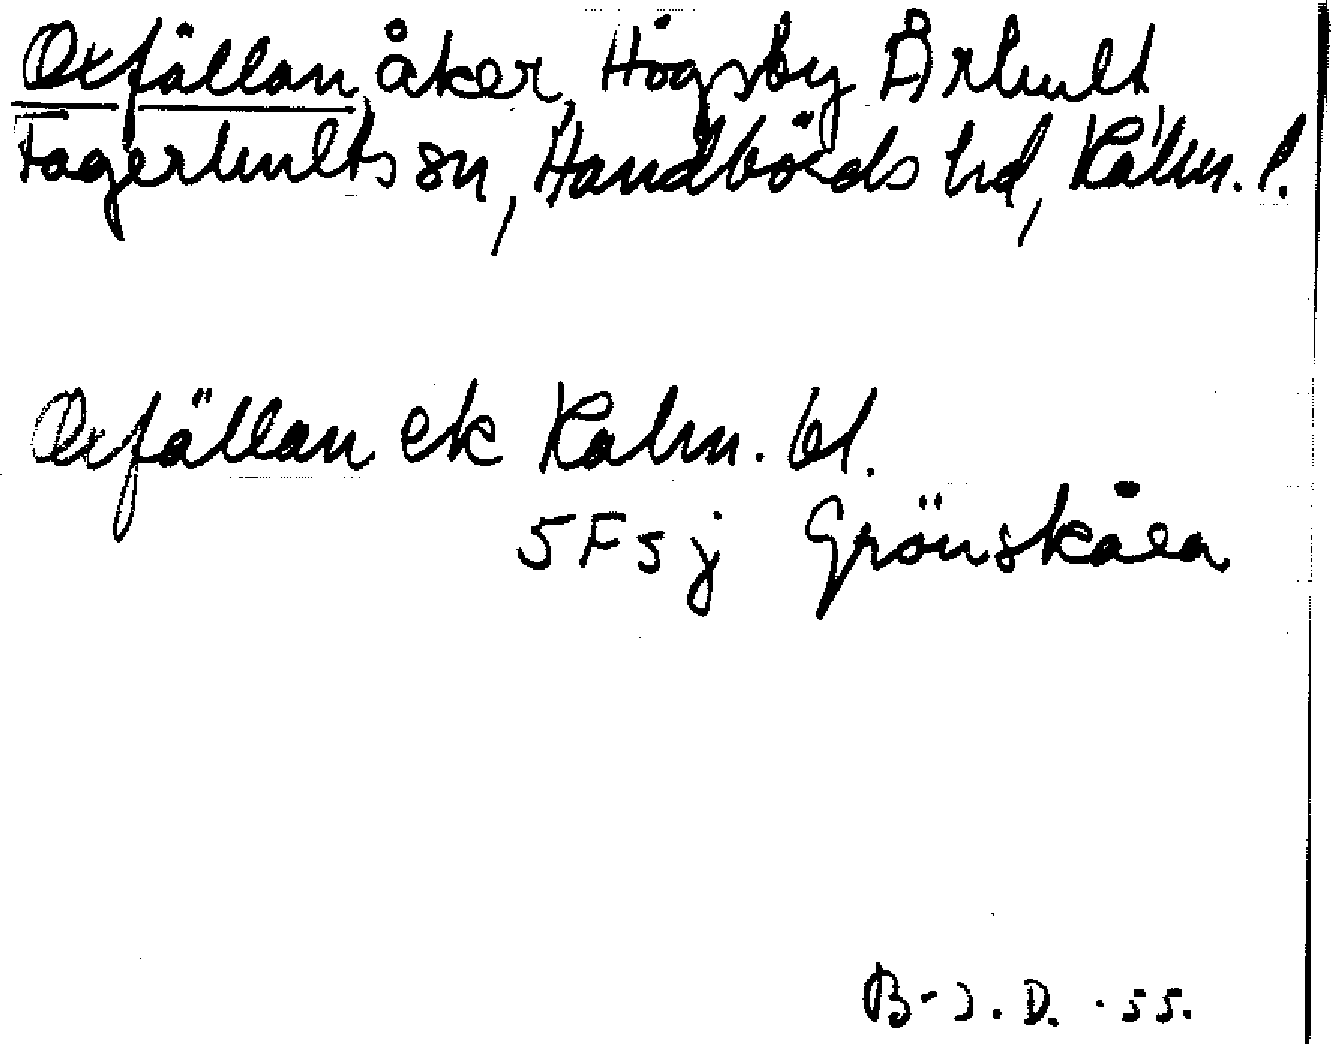 Oxfällan, åker, Högsby Århult,
Fagerhults sn, Handbörds hd, Kalm. l.
Oxfällan ek Kalm. bl.
5F5j Grönskåra
B-J. D. -55.